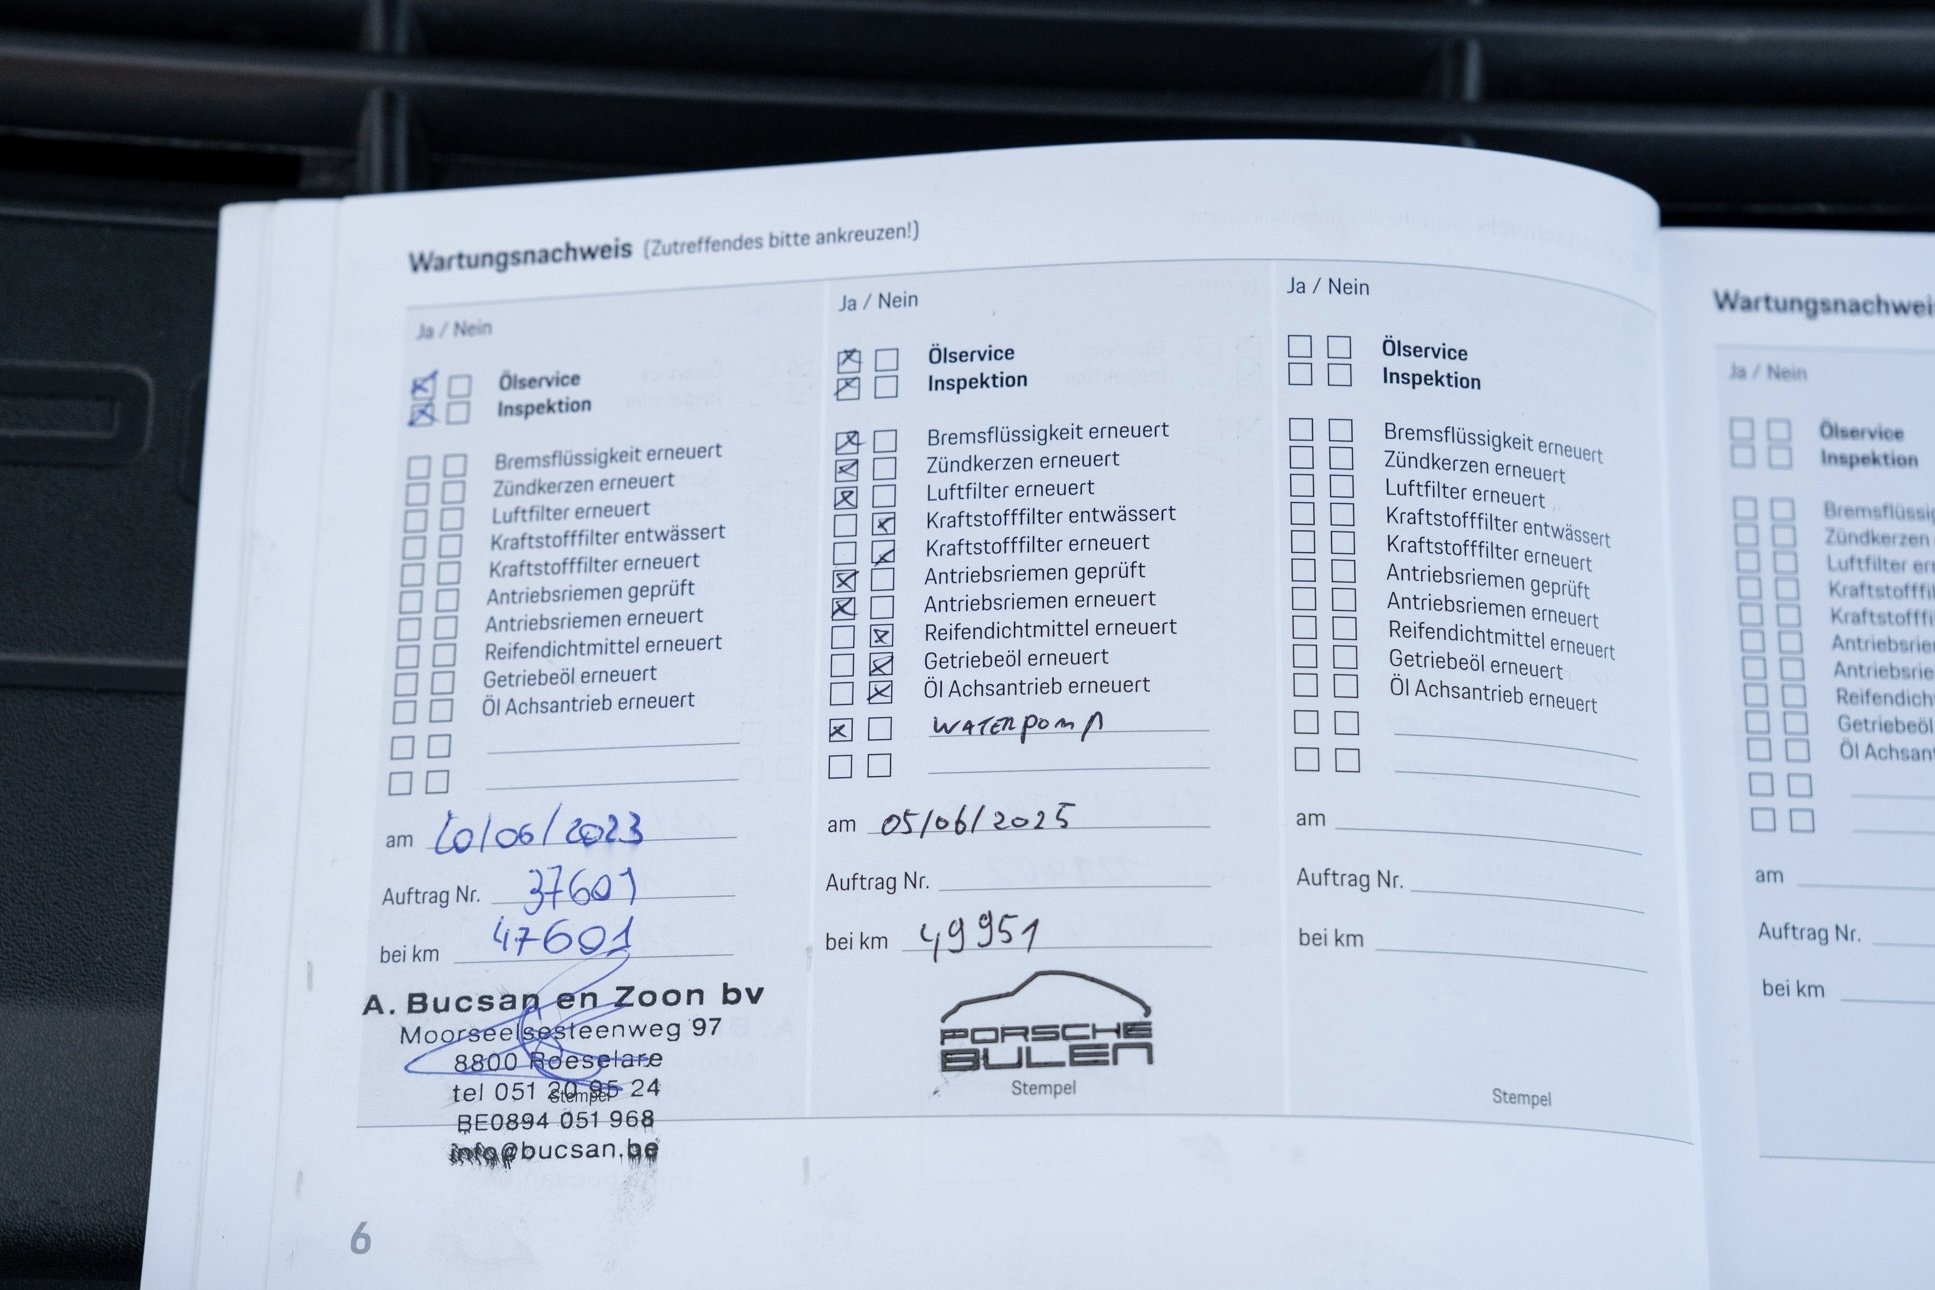 Wartungsnachweis (Zutreffendes bitte ankreuzen!)
Ja / Nein
Ölservice
Inspektion
Bremsflüssigkeit erneuert
Zündkerzen erneuert
Luftfilter erneuert
Kraftstofffilter entwässert
Kraftstofffilter erneuert
Antriebsriemen geprüft
Antriebsriemen erneuert
Reifendichtmittel erneuert
Getriebeöl erneuert
Öl Achsantrieb erneuert
am 20/06/2023
Auftrag Nr. 37601
bei km 47601
A. Bucsan en Zoon bv
Moorseelsesteenweg 97
8800 Roeselare
tel 051 20 95 24
Stempel
BE0894 051 968
info@bucsan.be
Ja / Nein
Ölservice
Inspektion
Bremsflüssigkeit erneuert
Zündkerzen erneuert
Luftfilter erneuert
Kraftstofffilter entwässert
Kraftstofffilter erneuert
Antriebsriemen geprüft
Antriebsriemen erneuert
Reifendichtmittel erneuert
Getriebeöl erneuert
Öl Achsantrieb erneuert
WATERPOMP
am 05/06/2025
Auftrag Nr.
bei km 49951
PORSCHE
BULEN
Stempel
Ja / Nein
Ölservice
Inspektion
Bremsflüssigkeit erneuert
Zündkerzen erneuert
Luftfilter erneuert
Kraftstofffilter entwässert
Kraftstofffilter erneuert
Antriebsriemen geprüft
Antriebsriemen erneuert
Reifendichtmittel erneuert
Getriebeöl erneuert
Öl Achsantrieb erneuert
am
Auftrag Nr.
bei km
Stempel
6
Wartungsnachwei
Ja / Nein
Ölservice
Inspektion
Bremsflüssig
Zündkerzen
Luftfilter er
Kraftstofffi
Kraftstofffi
Antriebsrie
Antriebsrie
Reifendich
Getriebeöl
Öl Achsan
am
Auftrag Nr.
bei km